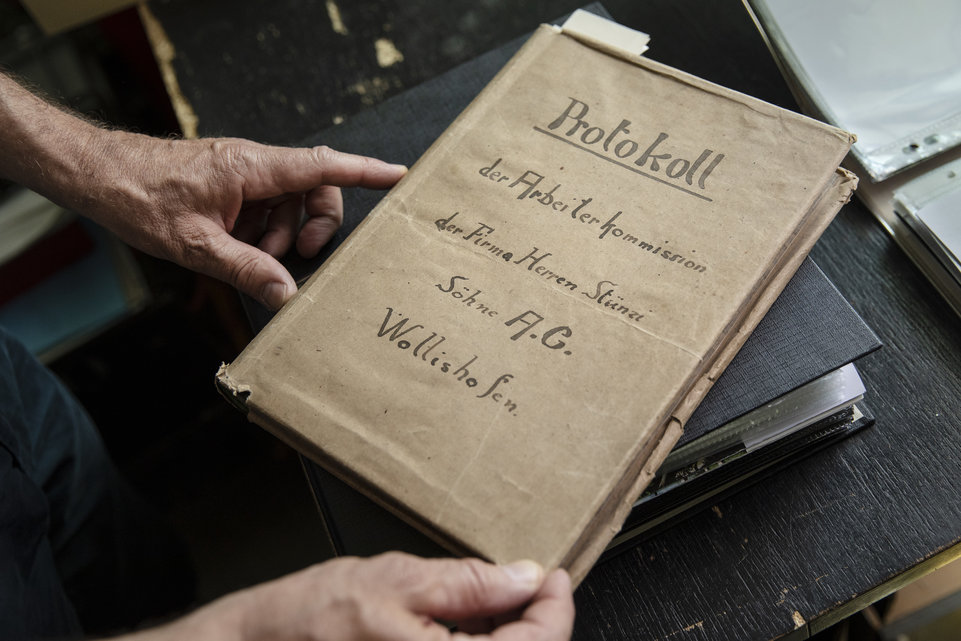 Protokoll
der Arbeiterkommission
der Firma Herren Stünzi
Söhne A.G.
Wollishofen.